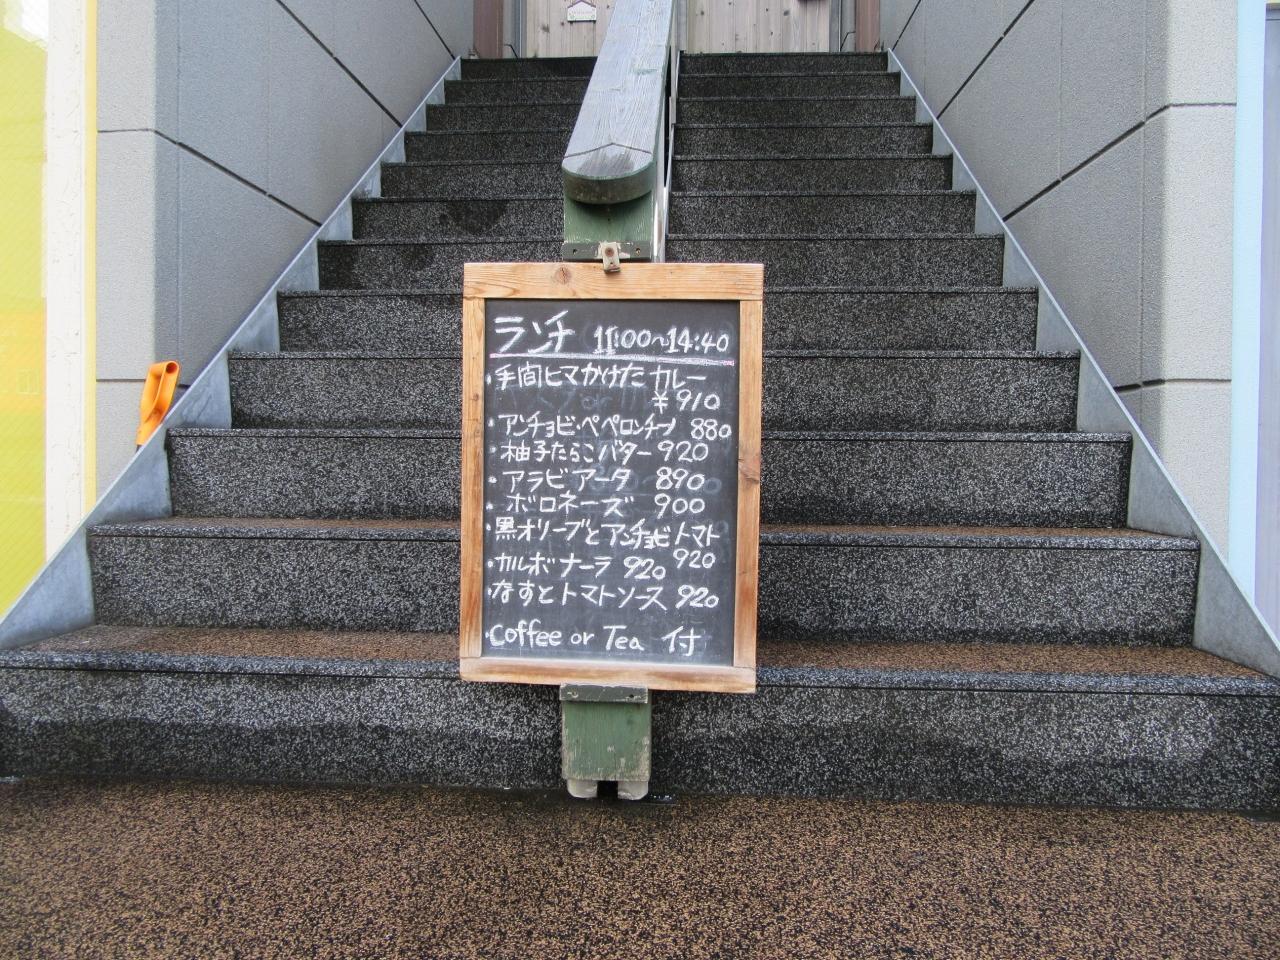 ランチ 11:00~14:40
・手間ヒマかけたカレー
¥910
・アンチョビ・ペペロンチーノ 880
・柚子たらこバター 920
・アラビアータ 890
・ボロネーズ 900
・黒オリーブとアンチョビトマト
920
・カルボナーラ 920
・なすとトマトソース 920
・Coffee or Tea 付